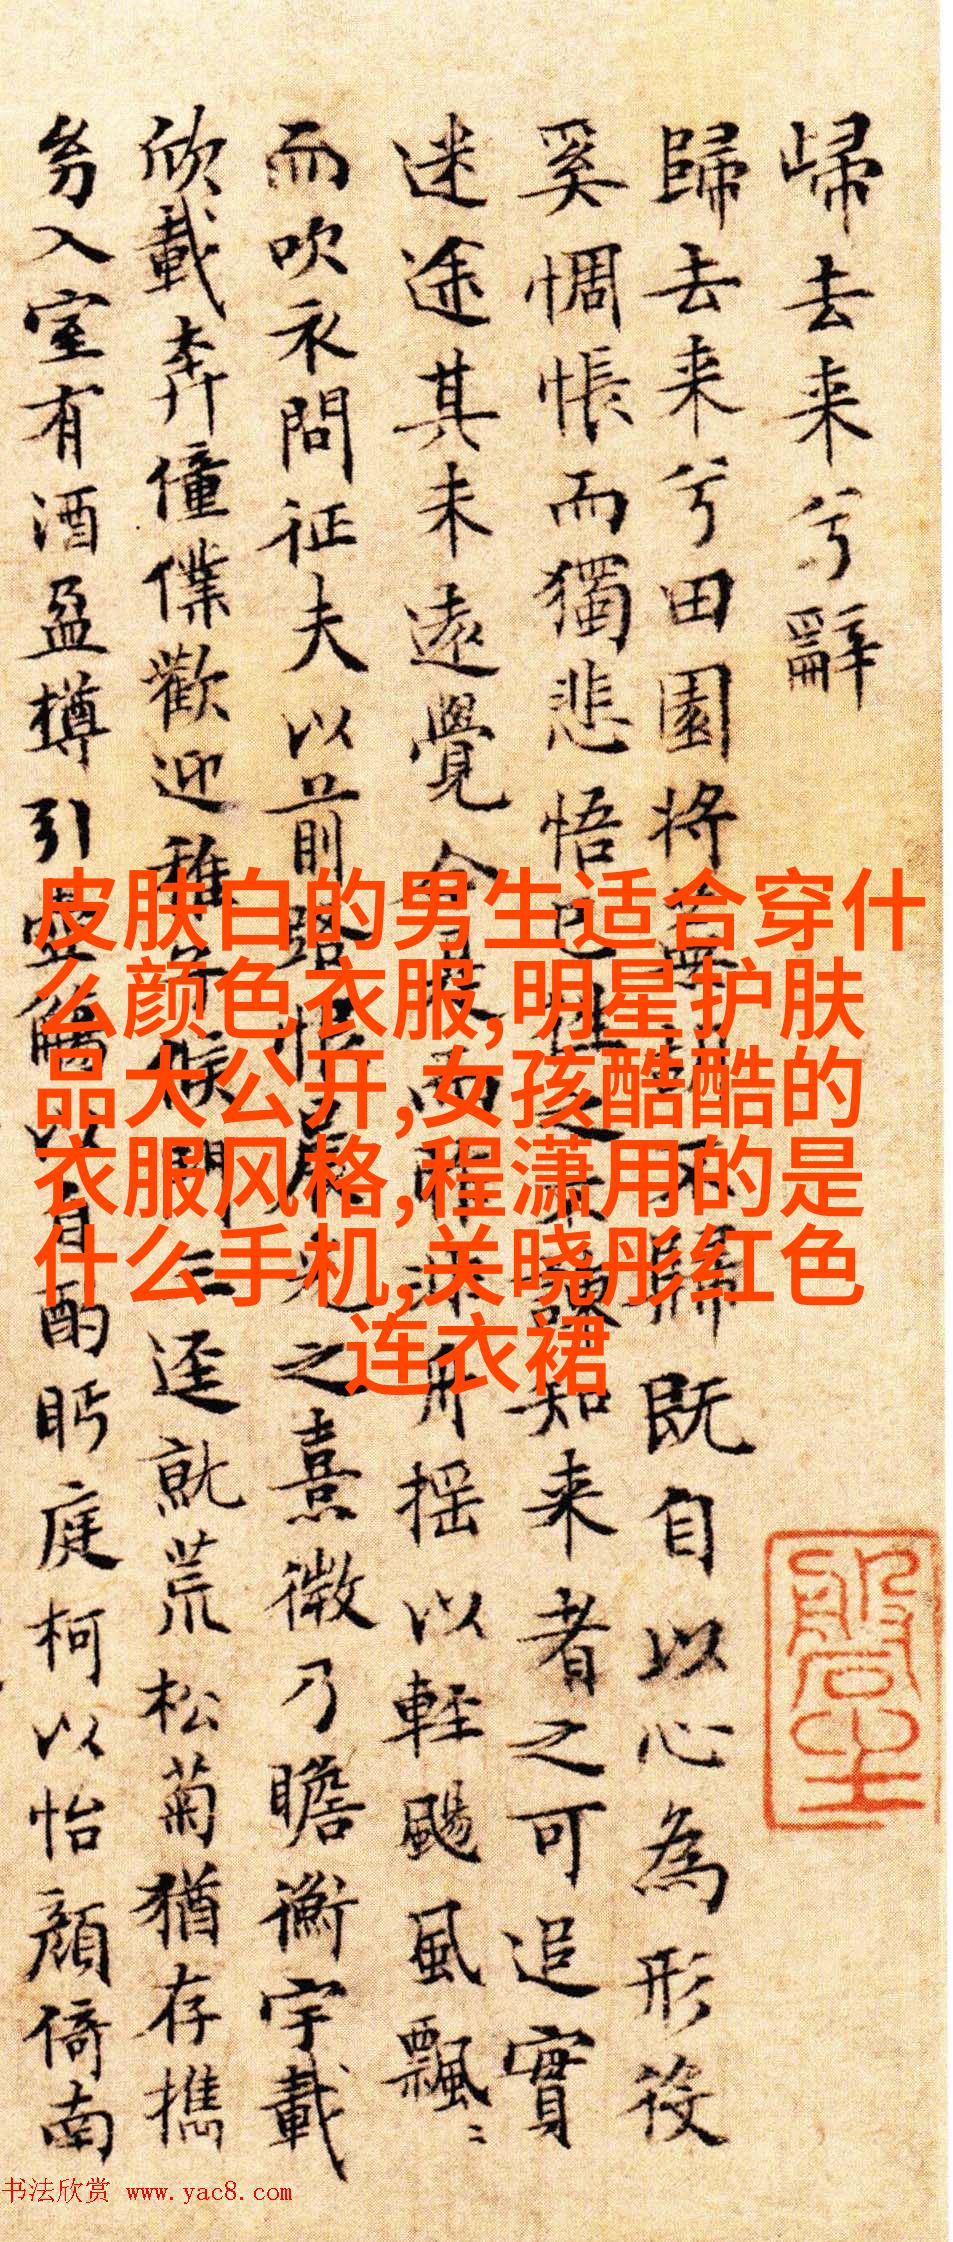 歸去来兮辭
歸去来兮田園将蕪胡不歸既自以心為形役
奚惆悵而獨悲悟已往之不諫知来者之可追實
迷途其未遠覺今是而昨非舟揺以輕颺風飄〻
而吹衣問征夫以前路恨晨光之熹微乃瞻衡宇載
欣載奔僮僕歡迎稚子候門三逕就荒松菊猶存携
幼入室有酒盈樽引壺觴以自酌眄庭柯以怡顔倚南
皮肤白的男生适合穿什
么颜色衣服,明星护肤
品大公开,女孩酷酷的
衣服风格,程潇用的是
什么手机,关晓彤红色
连衣裙
书法欣赏 www.yac8.com